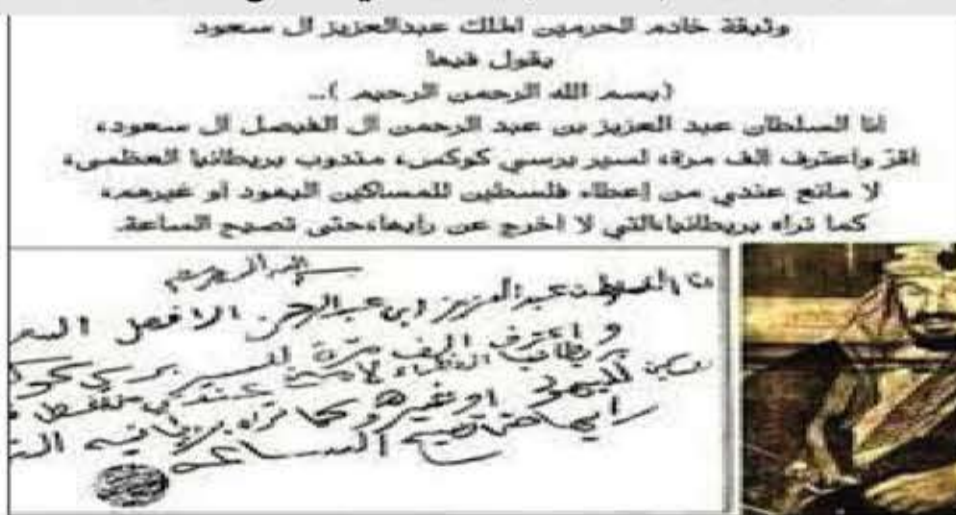 وثيقة خادم الحرمين الملك عبدالعزيز آل سعود
يقول فيها
(بسم الله الرحمن الرحيم )..
انا السلطان عبد العزيز بن عبد الرحمن آل الفيصل آل سعود،
اقرّ واعترف الف مرة، لسير برسي كوكس، مندوب بريطانيا العظمى،
لا مانع عندي من إعطاء فلسطين للمساكين اليهود او غيرهم،
كما تراه بريطانيا،التي لا اخرج عن رايها،حتى تصيح الساعة.
السلطان عبد العزيز ابن عبد الرحمن الافصل السعو
و اعترف الف مرة للسير برسي كو
لليهود او غيرهم وكما تراه بريطانيه الت
رايها حتى تصيح الساعه